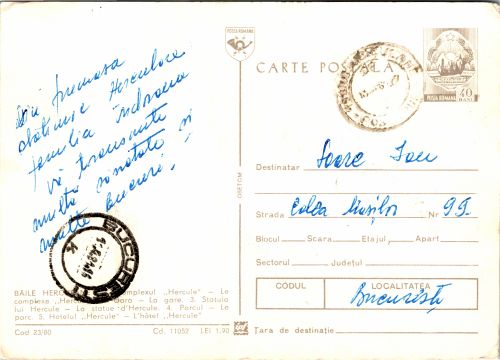 POSTA ROMÂNĂ
CARTE POȘTALĂ
POSTA ROMÂNĂ 40 BANI
Din frumoasa
stațiune Herculane
familia
vă transmite
multă sănătate și
multe bucurii.
BUCUREȘTI
Destinatar Soare Ion
Strada Calea Moșilor Nr 99
Blocul Scara Etajul Apart.
Sectorul Județul
CODUL LOCALITATEA
București
Țara de destinație
DIETCM
BĂILE HERC complexul „Hercule" — Le
complexe „Herc Gara — La gare. 3. Statuia
lui Hercule — La statue d'Hercule. 4. Parcul — Le
parc. 5. Hotelul „Hercule" — L'hôtel „Hercule"
Cod 23/80 Cd. 11052 LEI 1,90